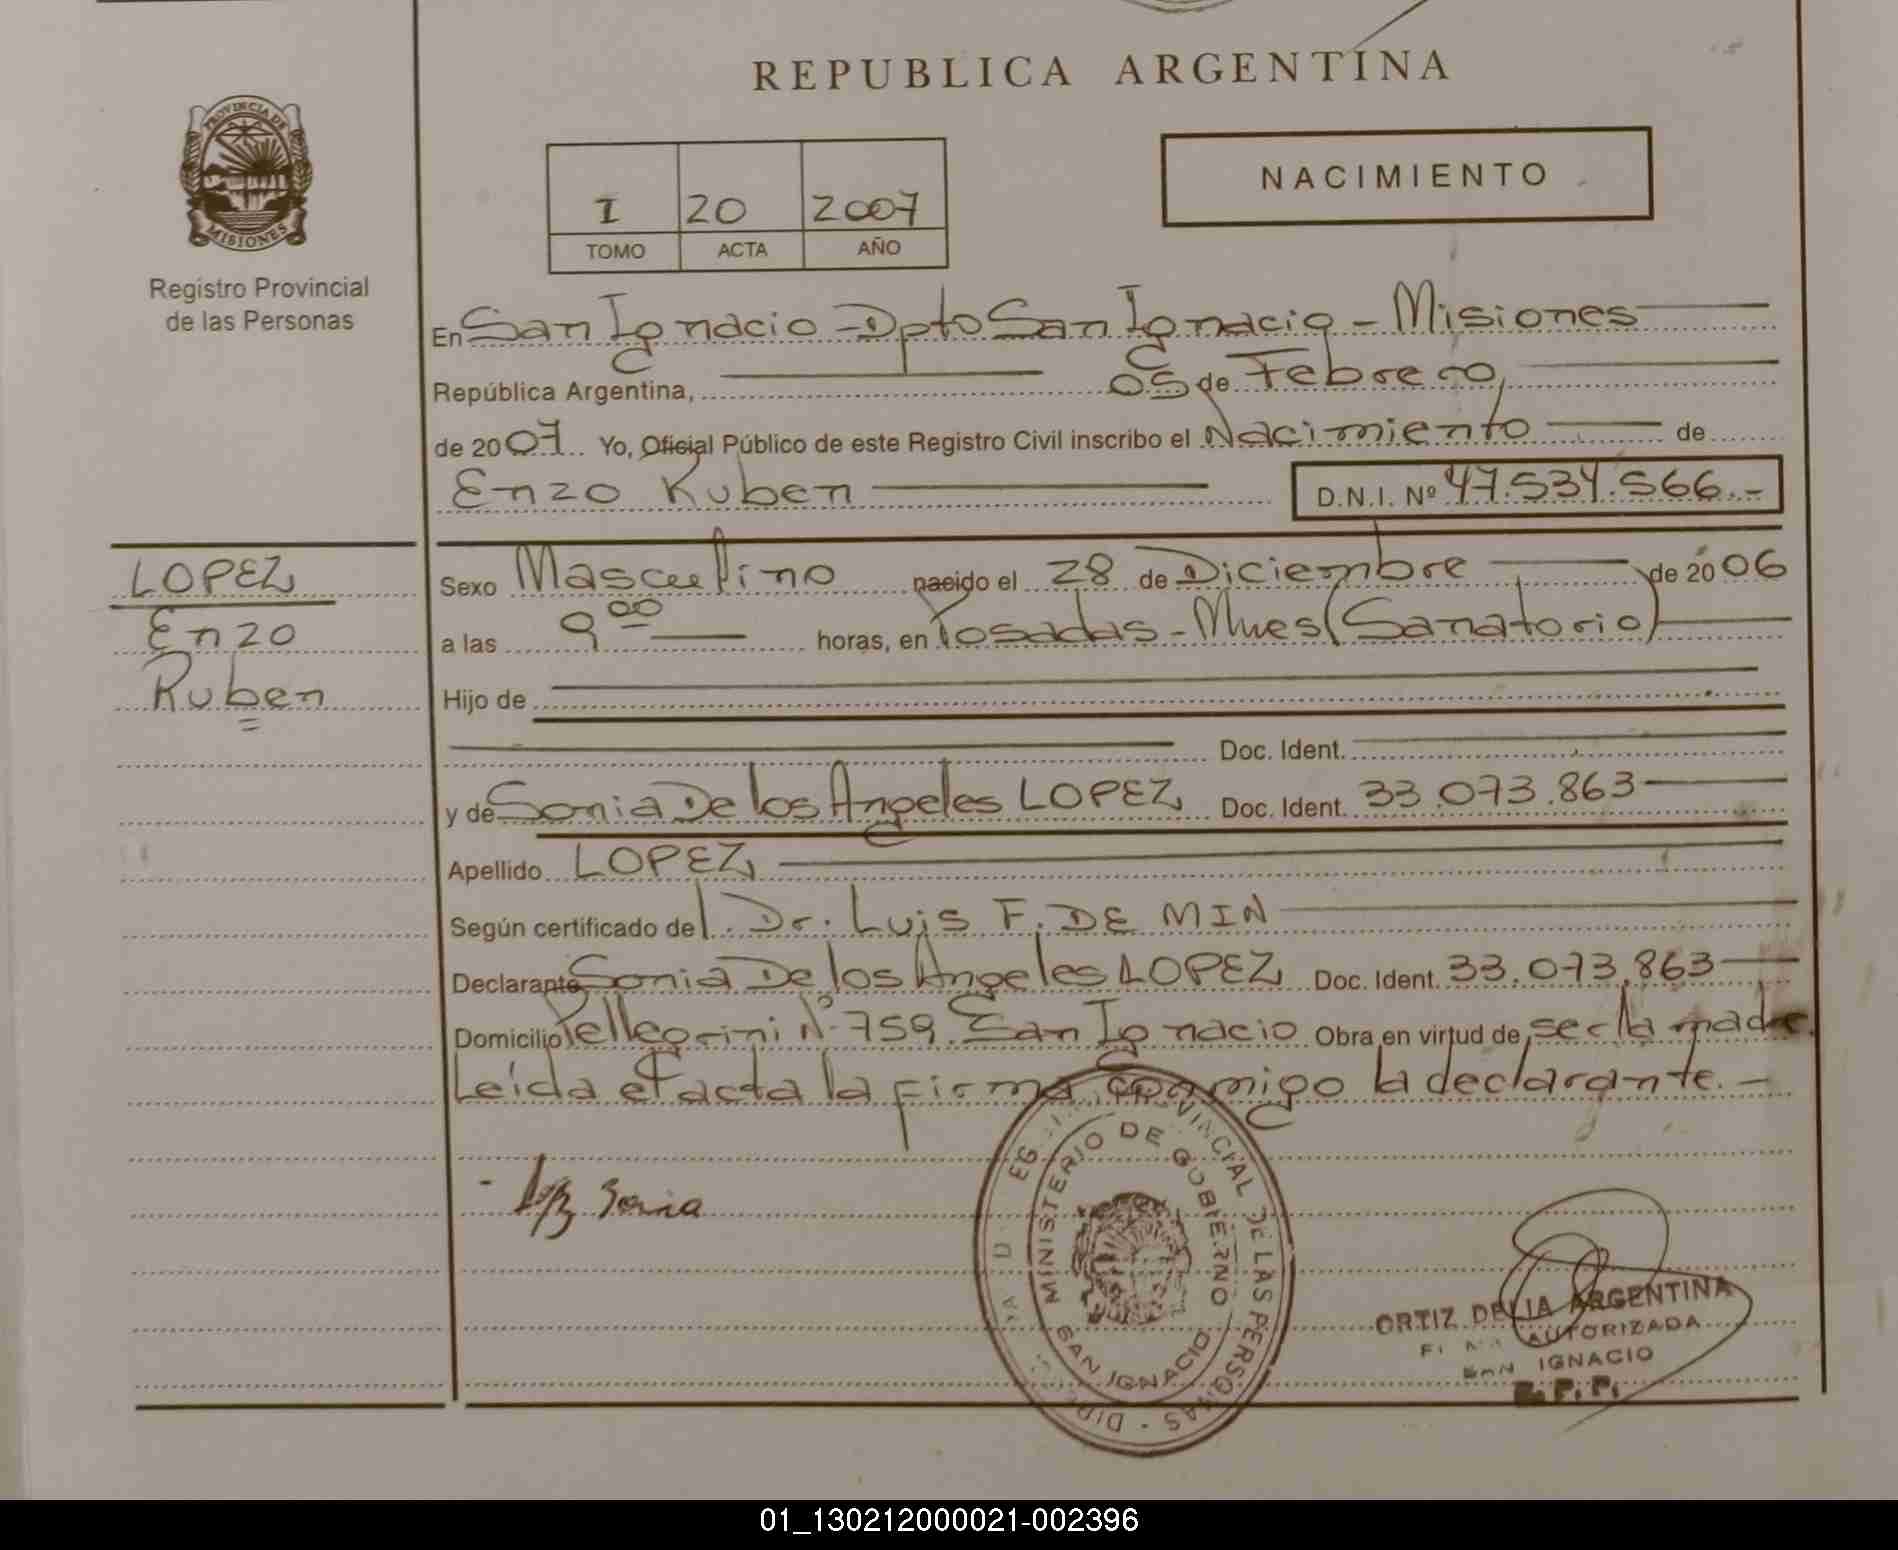 REPUBLICA ARGENTINA
PROVINCIA DE
MISIONES
Registro Provincial
de las Personas
NACIMIENTO
I 20 2007
TOMO ACTA AÑO
En San Ignacio - Dpto San Ignacio - Misiones
República Argentina, 05 de Febrero,
de 2007. Yo, Oficial Público de este Registro Civil inscribo el Nacimiento de
Enzo Ruben D.N.I. Nº 47.534.566.-
LOPEZ
Enzo
Ruben
Sexo Masculino nacido el 28 de Diciembre de 2006
a las 9 00 horas, en Posadas - Mnes (Sanatorio)
Hijo de
Doc. Ident.
y de Sonia De los Angeles LOPEZ Doc. Ident. 33.073.863
Apellido LOPEZ
Según certificado del Dr. Luis F. DE MIN
Declarante Sonia De los Angeles LOPEZ Doc. Ident. 33.073.863
Domicilio Pellegrini Nº 759. San Ignacio Obra en virtud de ser la madre.
Leída el acta la firma conmigo la declarante.-
Sonia
PROVINCIAL DE LAS PERSONAS
MINISTERIO DE GOBIERNO
SAN IGNACIO
ORTIZ DELIA ARGENTINA
AUTORIZADA
SAN IGNACIO
01_130212000021-002396